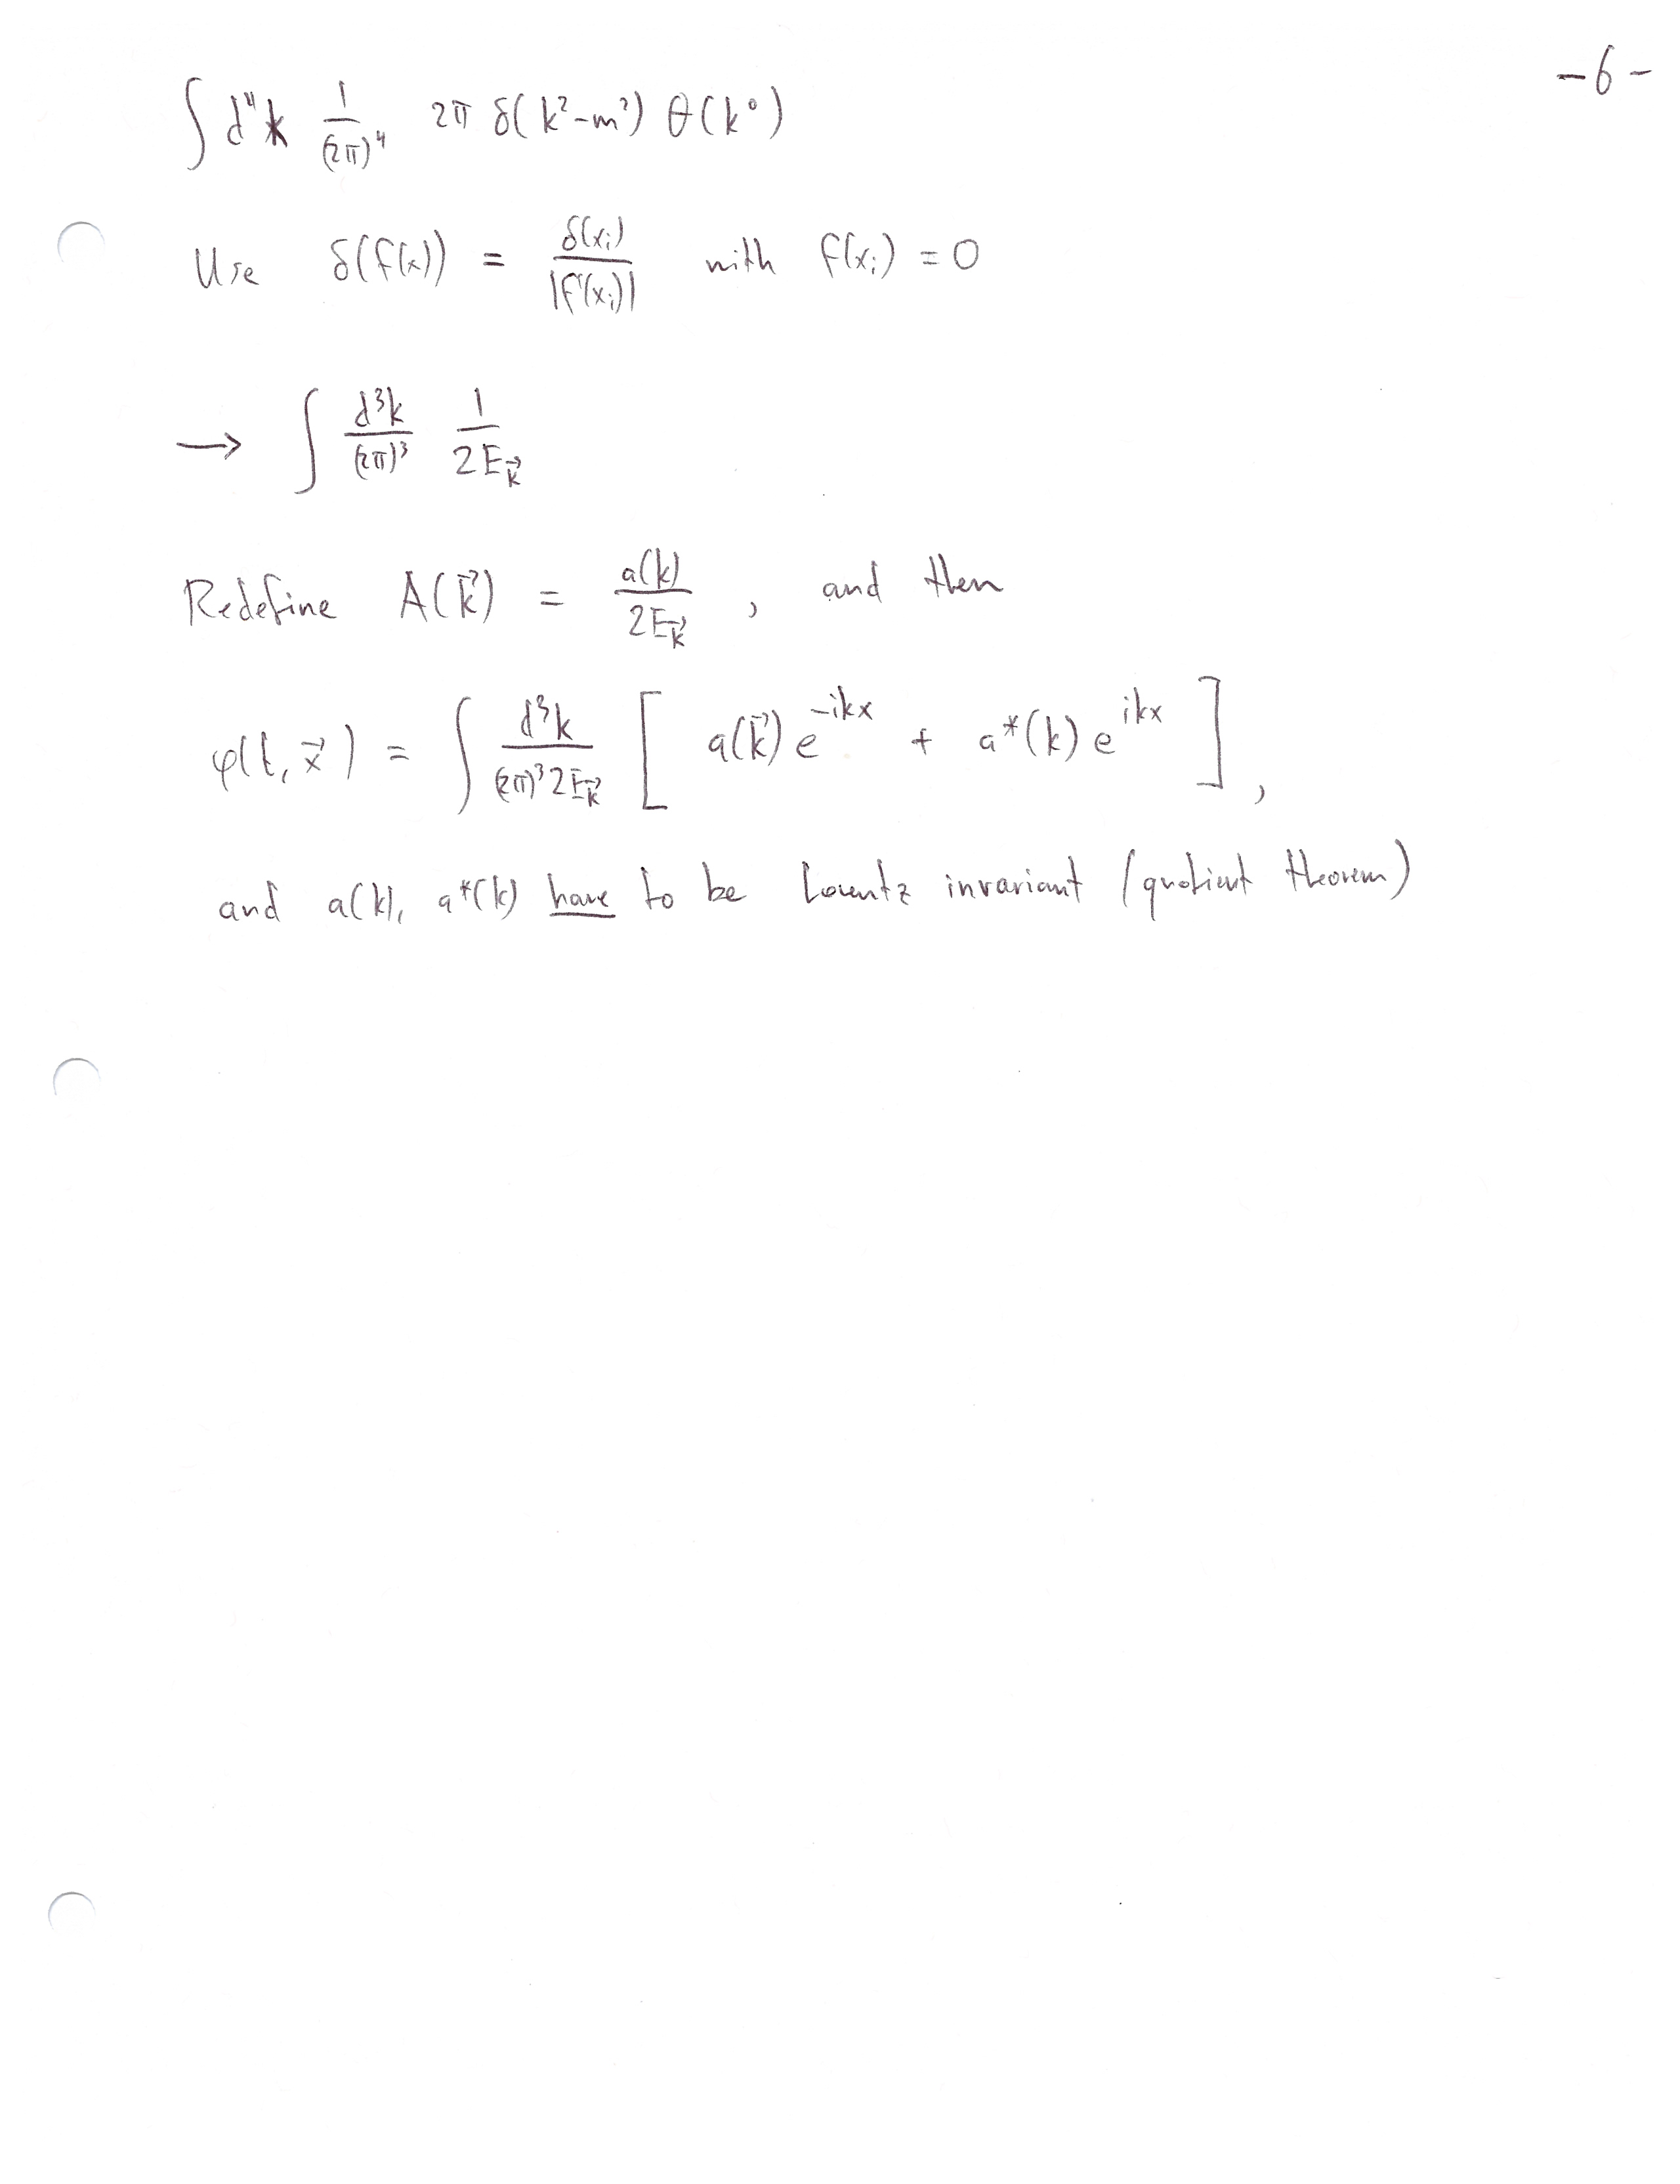 -6-
∫ d⁴k 1/(2π)⁴ 2π δ(k²-m²) θ(k⁰)
Use δ(f(x)) = δ(xᵢ)/|f'(xᵢ)| with f(xᵢ) = 0
→ ∫ d³k/(2π)³ 1/2E_k⃗
Redefine A(k⃗) = a(k)/2E_k⃗ , and then
φ(t, x⃗) = ∫ d³k/(2π)³2E_k⃗ [ a(k⃗) e^{-ikx} + a*(k) e^{ikx} ],
and a(k), a*(k) have to be Lorentz invariant (quotient theorem)